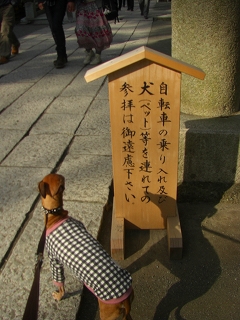 自転車の乗り入れ及び
犬(ペット)等を連れての
参拝は御遠慮下さい。